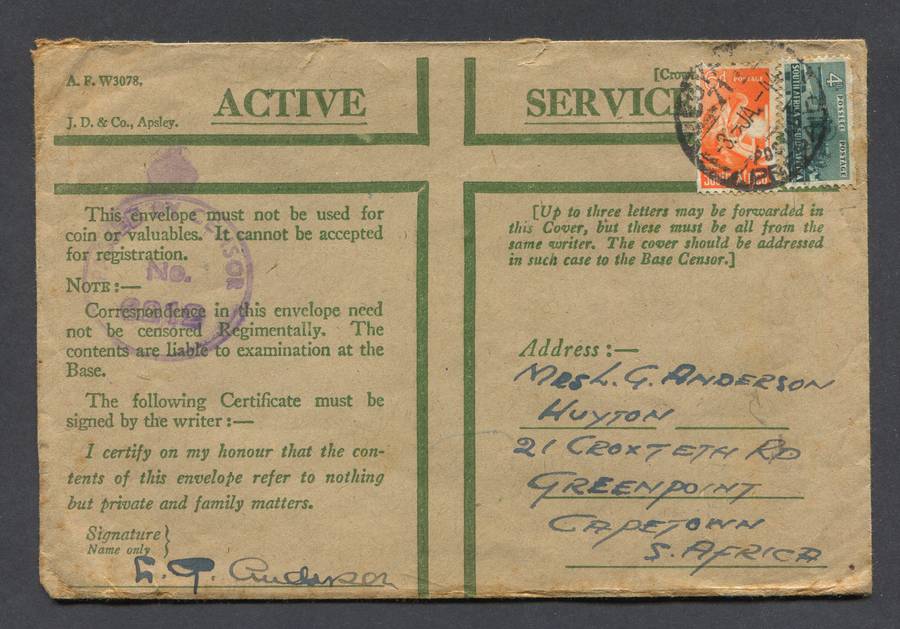 A. F. W3078.
ACTIVE
J. D. & Co., Apsley.
[Crown
SERVICE
This envelope must not be used for
coin or valuables. It cannot be accepted
for registration.
NOTE :—
Correspondence in this envelope need
not be censored Regimentally. The
contents are liable to examination at the
Base.
The following Certificate must be
signed by the writer :—
I certify on my honour that the con-
tents of this envelope refer to nothing
but private and family matters.
Signature
Name only
L. G. Anderson
[Up to three letters may be forwarded in
this Cover, but these must be all from the
same writer. The cover should be addressed
in such case to the Base Censor.]
Address :—
MRS L. G. ANDERSON
HUYTON
21 CROXTETH RD
GREENPOINT
CAPETOWN
S. AFRICA
No.
CENSOR
POSTAGE
4D
POSTAGE
SOUTH AFRICA
JA